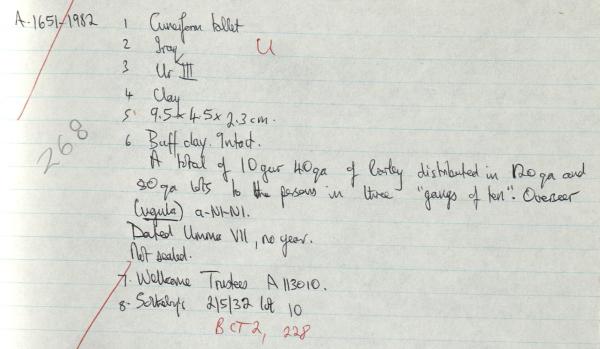 A.1651-1982 1 Cuneiform tablet
2 Iraq U
3 Ur III
4 Clay
5 9.5 x 4.5 x 2.3 cm.
268
6 Buff clay. Intact.
A total of 10 gur 40 qa of barley distributed in 120 qa and
80 qa lots to the persons in three "gangs of ten". Overseer
(ugula) a-NI-NI.
Dated Umma VII, no year.
Not sealed.
7. Wellcome Trustees A 113010.
8. Sotheby's 2/5/32 lot 10
BCT 2, 228